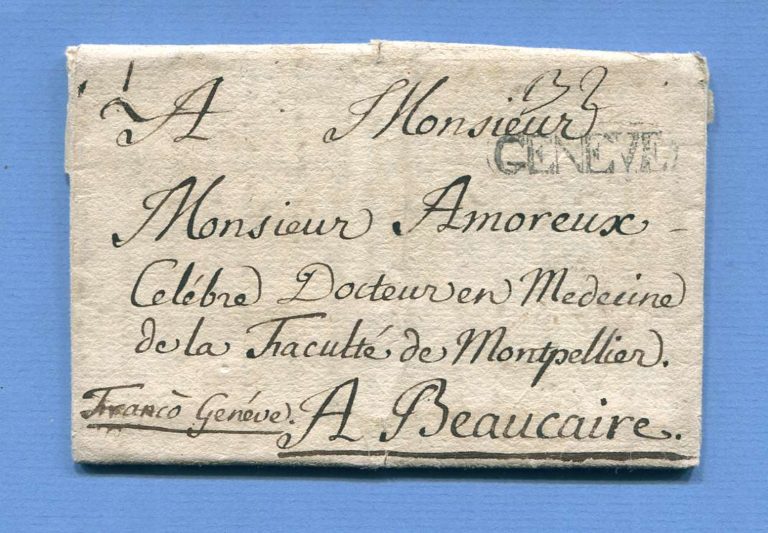 A Monsieur
GENEVE
Monsieur Amoreux
Celébre Docteur en Medecine
de la Faculté de Montpellier.
Franco Genéve. A Beaucaire.